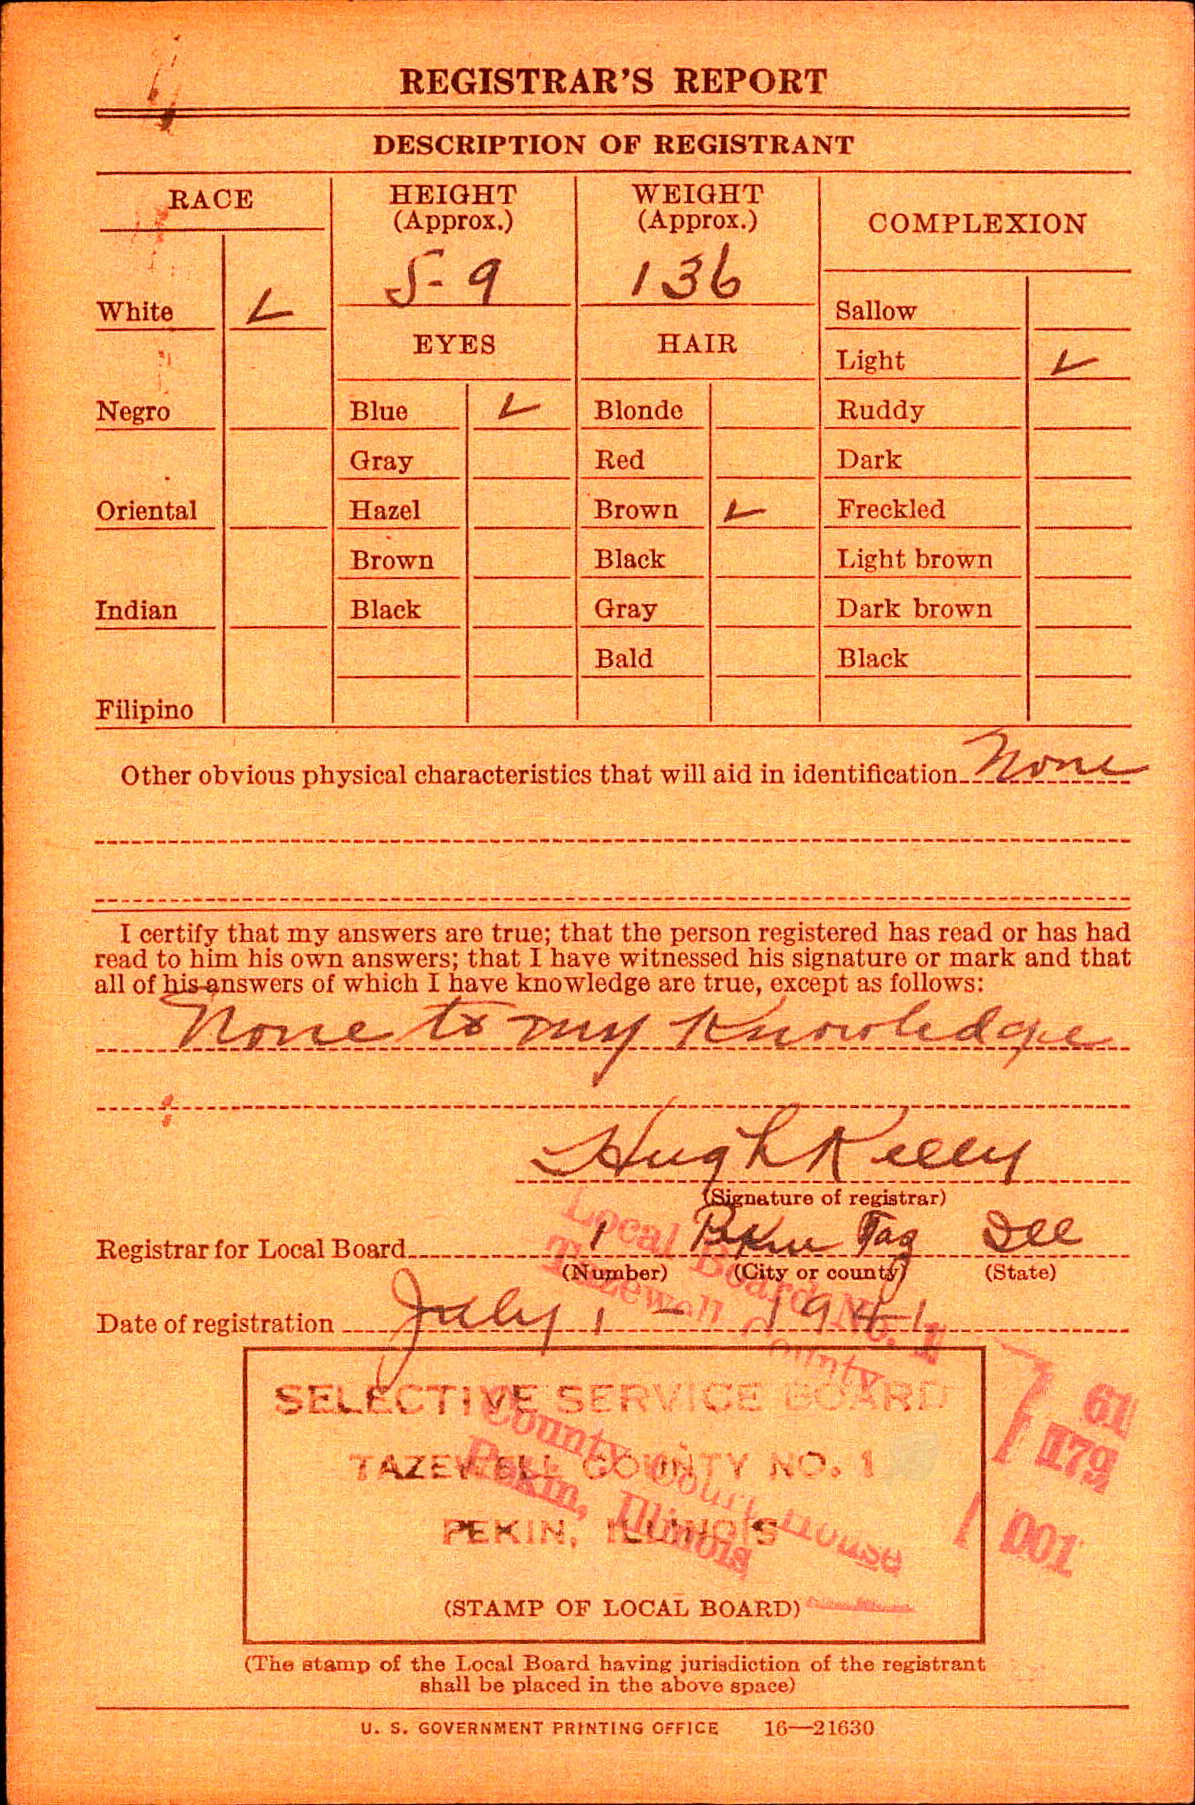 REGISTRAR'S REPORT
DESCRIPTION OF REGISTRANT
RACE
HEIGHT
(Approx.)
WEIGHT
(Approx.)
COMPLEXION
5-9
136
White ✓
Sallow
EYES
HAIR
Light ✓
Negro
Blue ✓
Blonde
Ruddy
Gray
Red
Dark
Oriental
Hazel
Brown ✓
Freckled
Brown
Black
Light brown
Indian
Black
Gray
Dark brown
Bald
Black
Filipino
Other obvious physical characteristics that will aid in identification None
I certify that my answers are true; that the person registered has read or has had
read to him his own answers; that I have witnessed his signature or mark and that
all of his answers of which I have knowledge are true, except as follows:
None to my Knowledge
Hugh Kelly
(Signature of registrar)
Registrar for Local Board 1 Pekin Taz Ill
(Number) (City or county) (State)
Date of registration July 1 - 1941
Local Board No. 1
Tazewell County
County Court House
Pekin, Illinois
61
179
001
SELECTIVE SERVICE BOARD
TAZEWELL COUNTY NO. 1
PEKIN, ILLINOIS
(STAMP OF LOCAL BOARD)
(The stamp of the Local Board having jurisdiction of the registrant
shall be placed in the above space)
U. S. GOVERNMENT PRINTING OFFICE 16—21630